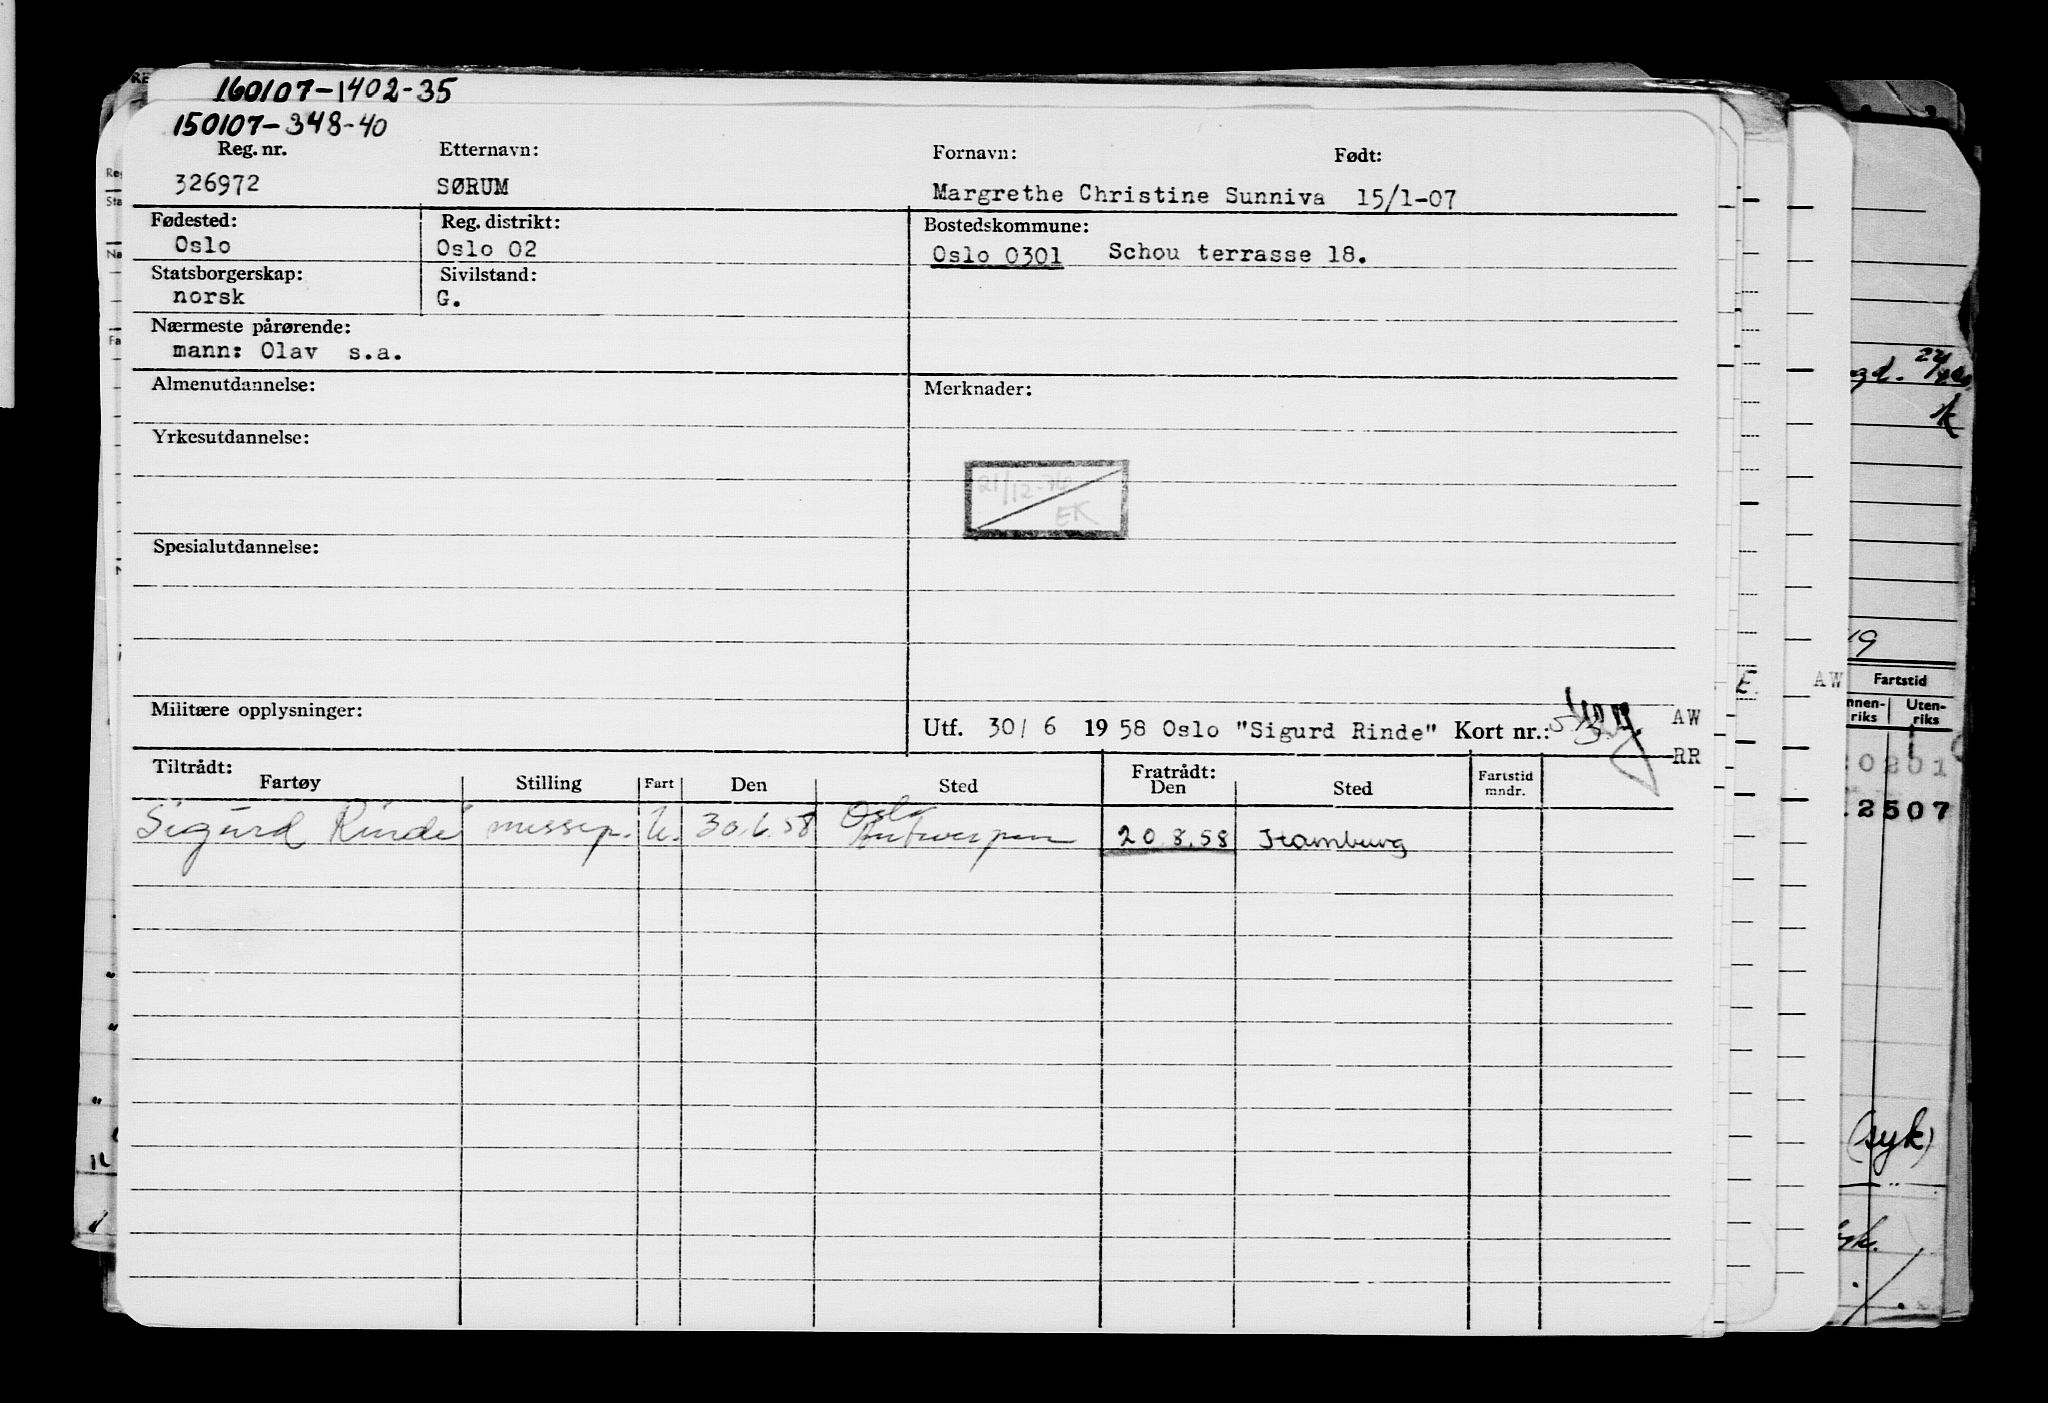 160107-1402-35
150107-348-40
Reg. nr. Etternavn: Fornavn: Født:
326972 SØRUM Margrethe Christine Sunniva 15/1-07
Fødested: Reg. distrikt: Bostedskommune:
Oslo Oslo 02 Oslo 0301 Schou terrasse 18.
Statsborgerskap: Sivilstand:
norsk G.
Nærmeste pårørende:
mann: Olav s.a.
Almenutdannelse: Merknader:
Yrkesutdannelse:
21/12-
EK
Spesialutdannelse:
Militære opplysninger:
Utf. 30/ 6 19 58 Oslo "Sigurd Rinde" Kort nr.: AW
RR
Tiltrådt: Fratrådt:
Fartøy Stilling Fart Den Sted Den Sted Fartstid mndr.
Sigurd Rinde messep. U. 30.6.58 Oslo
Antwerpen 20 8.58 Hamburg
E. AW
19
Fartstid
Uten-
riks riks
2507
(syk)